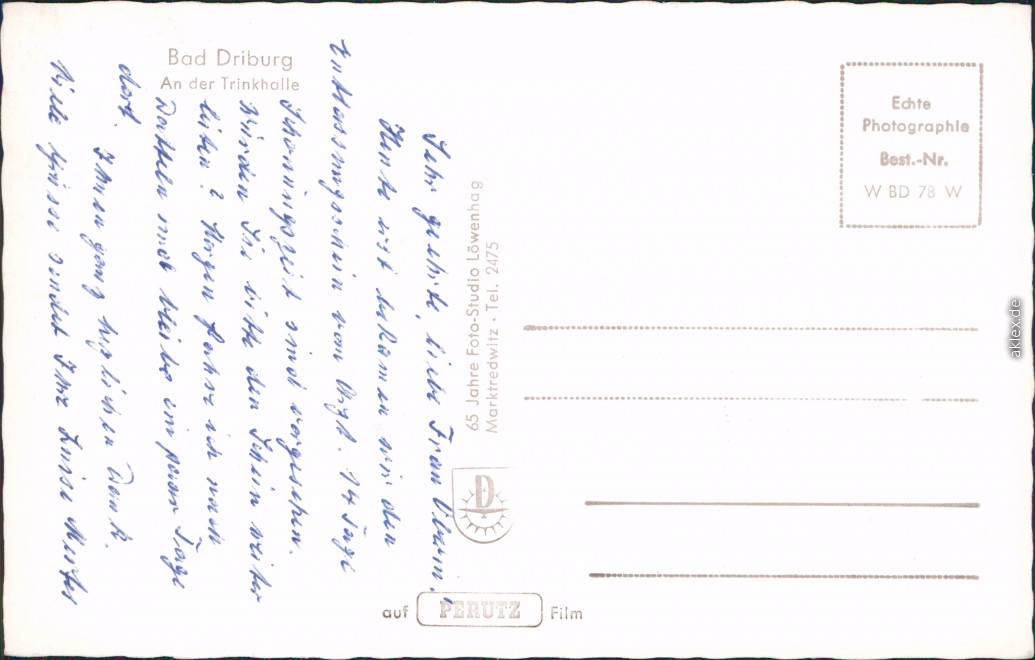 Bad Driburg
An der Trinkhalle
Sehr geehrte, liebe Frau
Heute erst bekamen wir den
Entlassungsschein vom Arzt. 14 Tage
Schonungszeit sind vorgesehen.
Würden Sie bitte den Schein weiter
leiten? Morgen fahre ich nach
Datteln und bleibe ein paar Tage
dort.
Ihnen ganz herzlichen Dank.
Viele Grüsse sendet Ihre Luise
65 Jahre Foto-Studio Löwenhag
Marktredwitz · Tel. 2475
D
auf PERUTZ Film
Echte
Photographie
Best.-Nr.
W BD 78 W
aklex.de